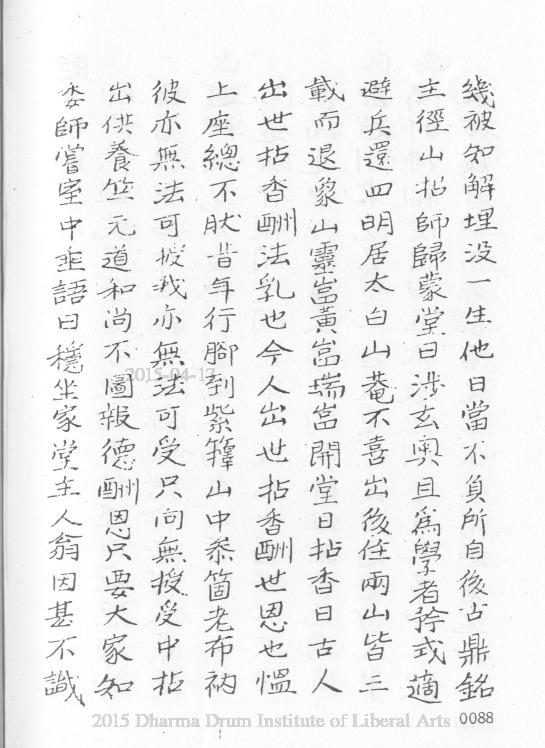 幾被知解埋没一生他日當不負所自後古鼎銘
主徑山招師歸蒙堂日涉玄奧且為學者矜式適
避兵還四明居太白山菴不喜出後住兩山皆三
載而退象山靈嵓黃嵓瑞嵓開堂日拈香曰古人
出世拈香酬法乳也今人出世拈香酬世恩也慍
上座總不肰昔年行腳到紫籜山中叅箇老布衲
彼亦無法可授我亦無法可受只向無授受中拈
出供養竺元道和尚不圖報德酬恩只要大家知
委師嘗室中垂語曰穩坐家堂主人翁因甚不識
2015-04-13
2015 Dharma Drum Institute of Liberal Arts 0088